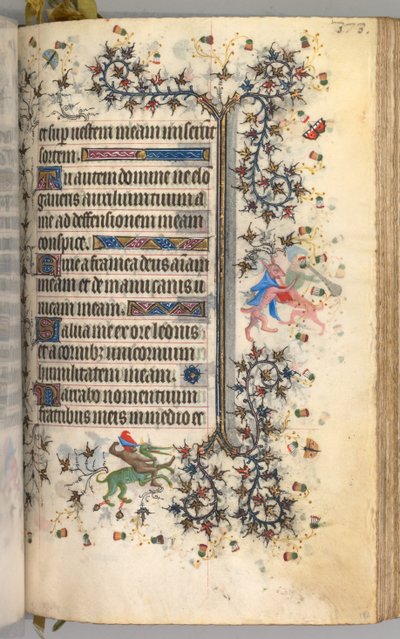 373.
et sup uestem meam miserūt
sortem.
Tu autem domine ne elo
gaueris auxilium tuum a
me ad deffensionem meam
conspice.
Erue a framea deus aīam
meam et de manu canis ū
meam meam.
Salua me ex ore leonis
et a cornibz unicornium
humilitatem meam.
Narrabo nomen tuum
fratribus meis in medio ec